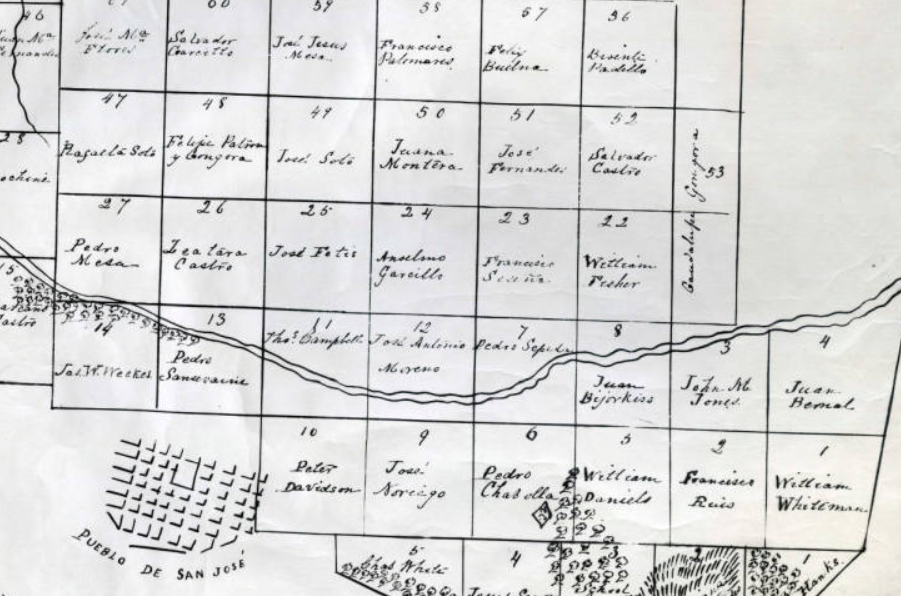 46
60
59
58
57
56
José Ma
Flores
Salvador
Garcello
José Jesus
Mesa
Francisco
Palomares
Felix
Buelna
Bicenti
Padillo
47
48
49
50
51
52
28
Rafaela Soto
Felipe Patron
y Gongora
José Soto
Juana
Montera
José
Fernandes
Salvador
Castro
53
Guadalupe Gongora
27
26
25
24
23
22
Pedro
Mesa
Castro
José Fetis
Anselmo
Garcillo
Francisco
William
Fisher
15
Castro
14
13
11
12
7
8
3
4
Jas. W. Weekes
Pedro
Sansevaine
Thos. Campbell
José Antonio
Moreno
Pedro Sepeda
Juan
Bijorkiss
John M.
Jones
Juan
Bernal
10
9
6
5
2
1
Peter
Davidson
José
Noriego
Pedro
Chabolla
William
Daniels
Francisco
Ruis
William
Whiteman
PUEBLO DE SAN JOSÉ
5
4
3
2
1
Chas White
School
Hanks.